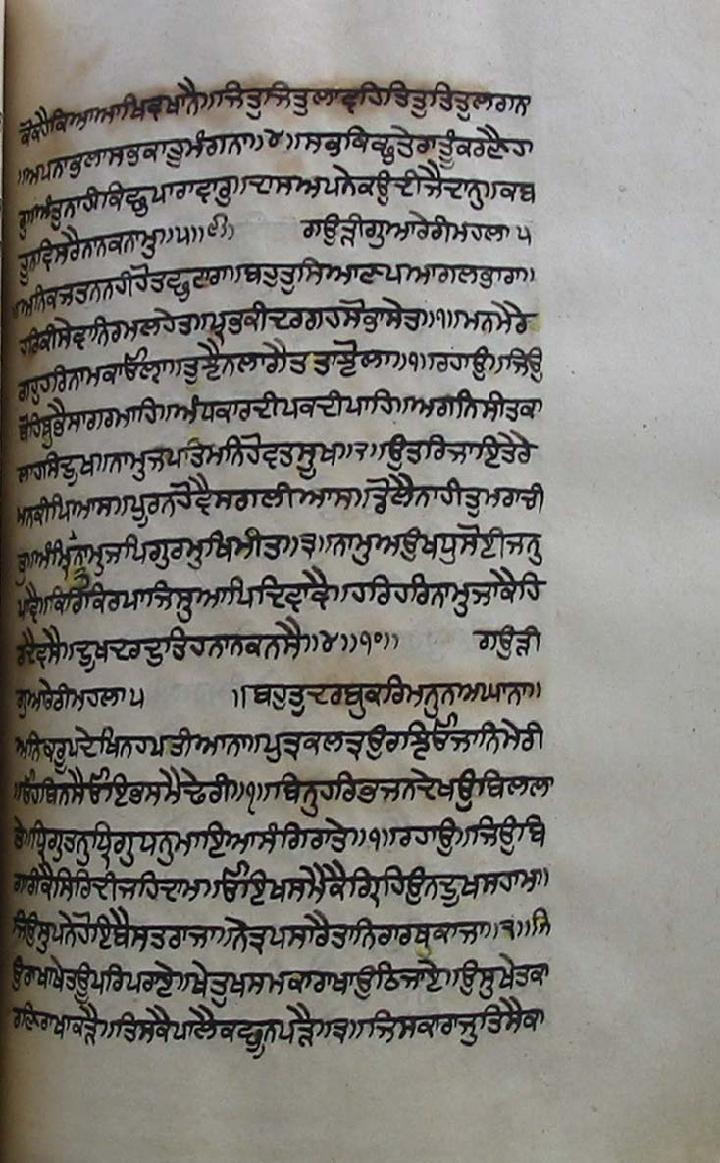 ਕੋਕਹੈਕਿਆਆਖਿਵਖਾਨੈ॥ਜਿਤੁਜਿਤੁਲਾਵਹਿਤਿਤੁਤਿਤੁਲਗਨ
॥ਅਪਨਾਭੁਲਾਸਭੁਕਾਤੁਮੰਗਨਾ॥੪॥ਸਭੁਕਿਛੁਤੇਰਾਤੂੰਕਰਣੈਹਾ
ਰੁ॥ਅੰਤੁਨਾਹੀਕਿਛੁਪਾਰਾਵਾਰੁ॥ਦਾਸਅਪਨੇਕਉਦੀਜੈਦਾਨੁ॥ਕਬ
ਹੂਨਾਵਿਸਰੈਨਾਨਕਨਾਮੁ॥੫॥੯॥ ਗਉੜੀਗੁਆਰੇਰੀਮਹਲਾ੫
॥ਅਨਿਕਜਤਨਨਹੀਹੋਤਛੁਟਾਰਾ॥ਬਹੁਤੁਸਿਆਣਪਆਗਲਭਾਰਾ॥
ਹਰਿਕੀਸੇਵਾਨਿਰਮਲਹੇਤ॥ਪ੍ਰਭਕੀਦਰਗਹਸੋਭਾਸੇਤ॥੧॥ਮਨਮੇਰੇ
ਗਹੁਹਰਿਨਾਮਕਾਓਲ੍ਹਾ॥ਤੁਝੈਨਲਾਗੈਤਾਤਾਝੋਲਾ॥੧॥ਰਹਾਉ॥ਜਿਉ
ਬੋਹਿਥੁਭੈਸਾਗਰਮਾਹਿ॥ਅੰਧਕਾਰਦੀਪਕਦੀਪਾਹਿ॥ਅਗਨਿਸੀਤਕਾ
ਲਾਹਸਿਦੁਖ॥ਨਾਮੁਜਪਤਮਨਿਹੋਵਤਸੂਖ॥੨॥ਉਤਰਿਜਾਇਤੇਰੇ
ਮਨਕੀਪਿਆਸ॥ਪੂਰਨਹੋਵੈਸਗਲੀਆਸ॥ਡੋਲੈਨਾਹੀਤੁਮਰਾਚੀ
ਤੁ॥ਅੰਮ੍ਰਿਤਨਾਮੁਜਪਿਗੁਰਮੁਖਿਮੀਤ॥੩॥ਨਾਮੁਅਉਖਧੁਸੋਈਜਨੁ
ਪਾਵੈ॥ਕਰਿਕਿਰਪਾਜਿਸੁਆਪਿਦਿਵਾਵੈ॥ਹਰਿਹਰਿਨਾਮੁਜਾਕੈਹਿ
ਰਦੈਵਸੈ॥ਦੁਖਦਰਦੁਤਿਹਨਾਨਕਨਸੈ॥੪॥੧੦॥ ਗਉੜੀ
ਗੁਆਰੇਰੀਮਹਲਾ੫ ॥ਬਹੁਤੁਦਰਬੁਕਰਿਮਨੁਨਾਅਘਾਨਾ॥
ਅਨਿਕਰੂਪਦੇਖਿਨਹਪਤੀਆਨਾ॥ਪੁਤ੍ਰਕਲਤ੍ਰਉਰਝਿਓਜਾਨਿਮੇਰੀ
॥ਓਹਬਿਨਸੈਓਇਭਸਮੈਢੇਰੀ॥੧॥ਬਿਨੁਹਰਿਭਜਨਦੇਖਉਬਿਲਲਾ
ਤੇ॥ਧ੍ਰਿਗੁਤਨੁਧ੍ਰਿਗੁਧਨੁਮਾਇਆਸੰਗਿਰਾਤੇ॥੧॥ਰਹਾਉ॥ਜਿਉਬਿ
ਗਾਰੀਕੈਸਿਰਿਦੀਜਹਿਦਾਮ॥ਓਇਖਸਮੈਕੈਗ੍ਰਿਹਿਉਨਦੂਖਸਹਾਮ॥
ਜਿਉਸੁਪਨੇਹੋਇਬੈਸਤਰਾਜਾ॥ਨੇਤ੍ਰਪਸਾਰੈਤਾਨਿਰਾਰਥੁਕਾਜਾ॥੨॥ਜਿ
ਉਰਾਖਾਖੇਤਊਪਰਿਪਰਾਏ॥ਖੇਤੁਖਸਮਕਾਰਾਖਾਉਠਿਜਾਏ॥ਉਸੁਖੇਤਕਾ
ਰਣਿਰਾਖਾਕੜੈ॥ਤਿਸਕੈਪਾਲੈਕਛੂਨਪੜੈ॥੩॥ਜਿਸਕਾਰਾਜੁਤਿਸੈਕਾ